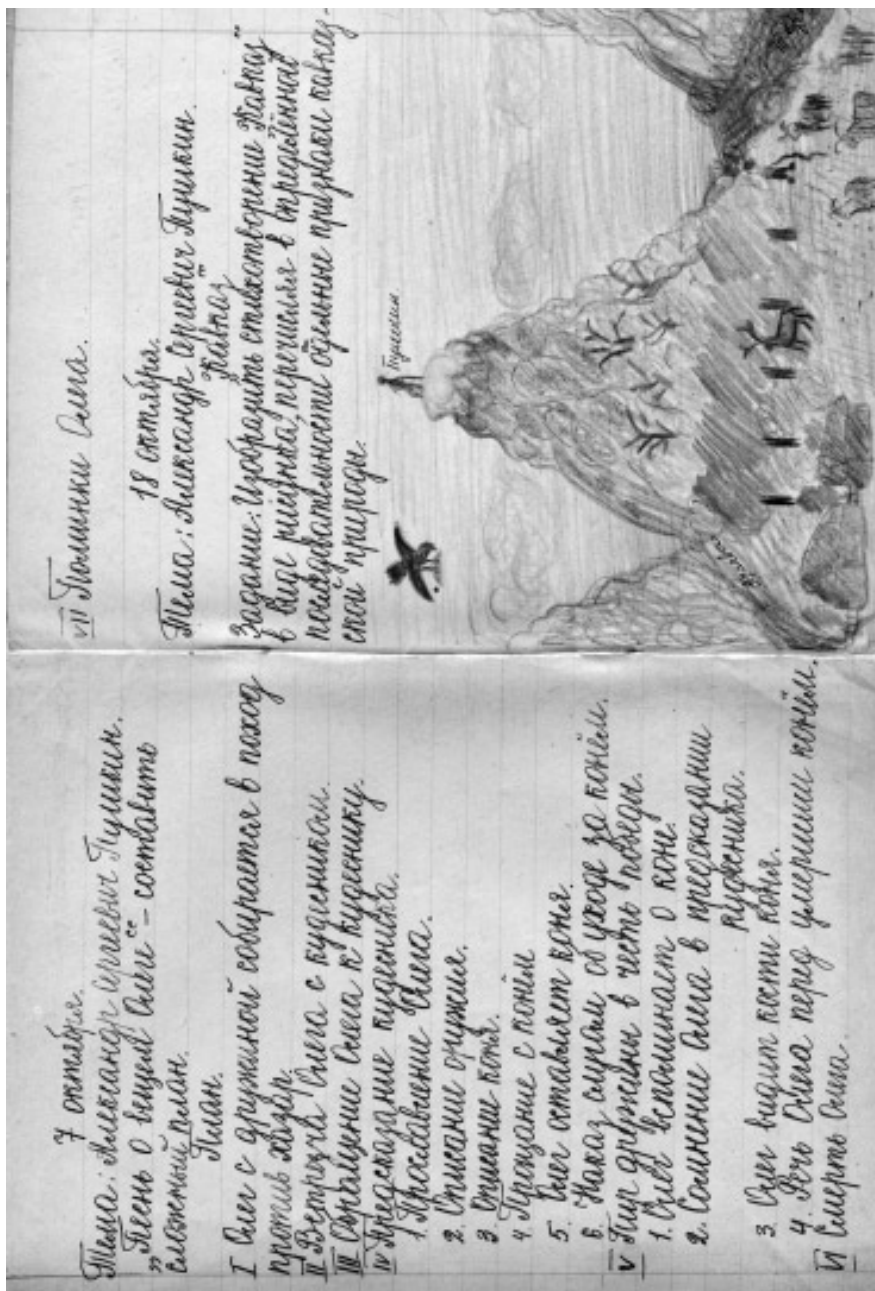 7 октября.
Тема: Александр Сергеевич Пушкин.
„Песнь о вещем Олеге" – составить
сложный план.
План.
I Олег с дружиной собирается в поход
против хазар.
II Встреча Олега с кудесником.
III Обращение Олега к кудеснику.
IV Предсказание кудесника.
1. Прославление Олега.
2. Описание оружия.
3. Описание коня.
4. Прощание с конём
5. Олег оставляет коня.
6. Наказ слугам об уходе за конём.
V Пир дружины в честь победы.
1. Олег вспоминает о коне.
2. Сомнение Олега в предсказании
кудесника.
3. Олег видит кости коня.
4. Речь Олега перед умершим конём.
VI Смерть Олега.
VII Поминки Олега.
18 октября.
Тема: Александр Сергеевич Пушкин.
„Кавказ"
Задание: Изобразить стихотворение „Кавказ"
в виде рисунка, перечисляя в определённой
последовательности отдельные признаки кавказ-
ской природы.
Пушкин